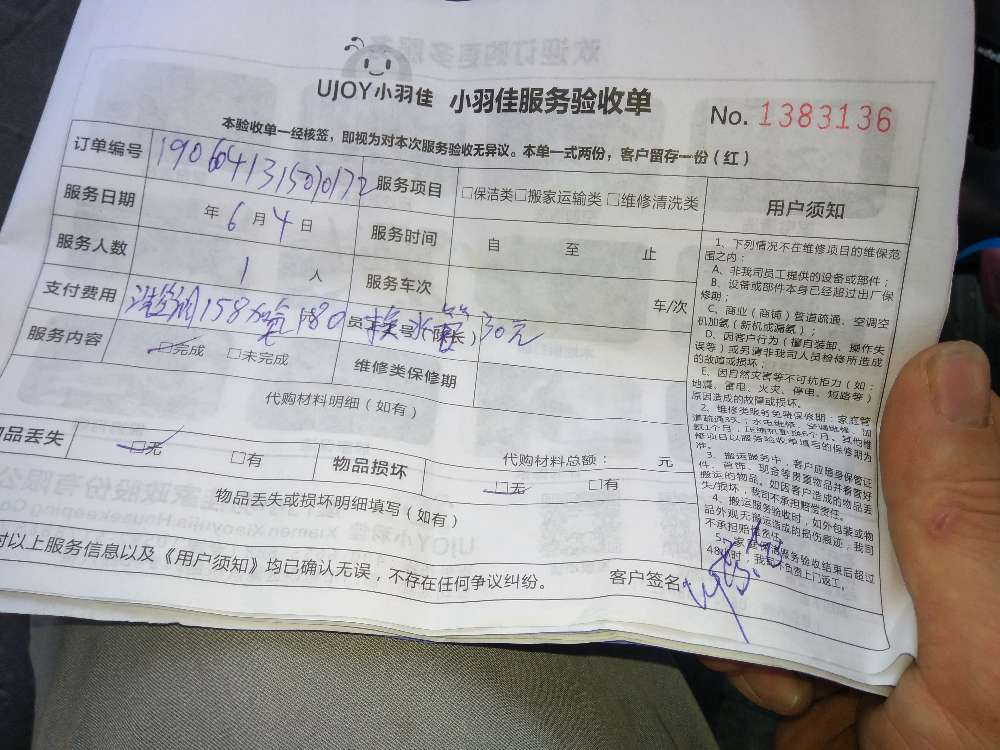 UJOY小羽佳 小羽佳服务验收单
No. 1383136
本验收单一经核签，即视为对本次服务验收无异议。本单一式两份，客户留存一份（红）
订单编号
服务项目 □保洁类□搬家运输类 □维修清洗类
服务日期 年 6 月 4 日
服务时间 自 至 止
服务人数 1 人
服务车次 车/次
支付费用 158 加氟 180 换水管 30元
服务内容 □完成 □未完成
维修类保修期
代购材料明细（如有）
代购材料总额： 元
物品丢失 □无 □有
物品损坏 □无 □有
物品丢失或损坏明细填写（如有）
对以上服务信息以及《用户须知》均已确认无误，不存在任何争议纠纷。
客户签名
用户须知
1、下列情况不在维修项目的维保范
围之内：
A、非我司员工提供的设备或部件；
B、设备或部件本身已经超过出厂保
修期；
C、商业（商铺）管道疏通、空调空
机加氟（新机或漏氟）；
D、因客户行为（擅自装卸、操作失
误等）或另请非我司人员检修所造成
的故障或损坏；
E、因自然灾害等不可抗拒力（如：
地震、雷电、火灾、停电、短路等）
原因造成的故障或损坏。
2、维修类服务免费保修期：家庭管
修项目以服务验收单填写的保修期为
准。
3、搬运服务中，客户应随身保管证
件、首饰、现金等贵重物品并看管好
搬运的物品。如因客户造成的物品丢
失/损坏，我司不承担赔偿责任。
4、搬运服务验收时，如外包装或物
品外观无搬运造成的损伤痕迹，我司
不承担赔偿责任。
服务验收结束后超过
48小时，我司不负责上门返工。